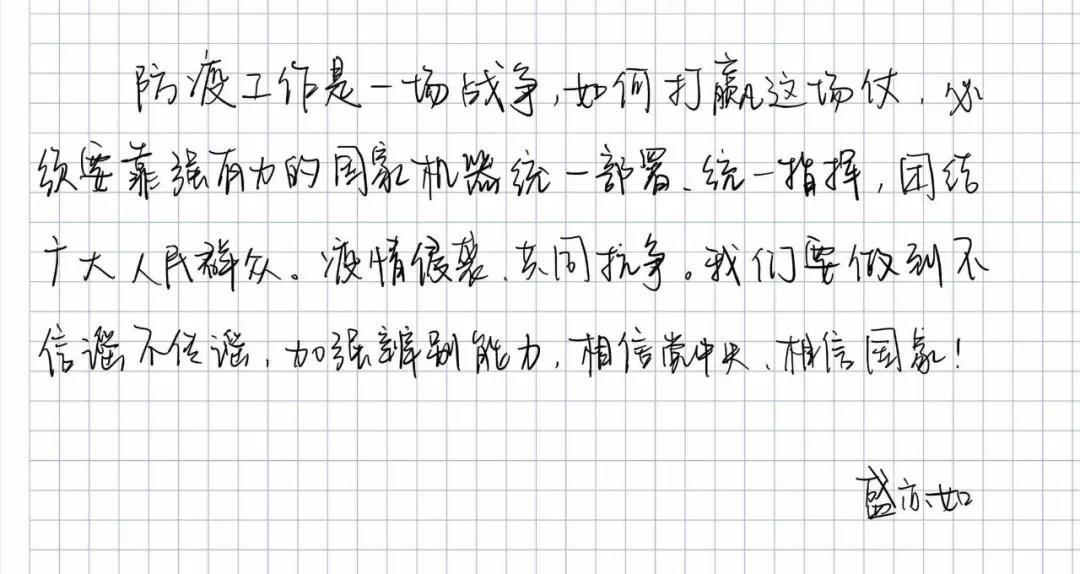 防疫工作是一场战争,如何打赢这场仗,必
须要靠强有力的国家机器统一部署、统一指挥,团结
广大人民群众。疫情侵袭、共同抗争。我们要做到不
信谣不传谣,加强辨别能力,相信党中央、相信国家!
盛亦如